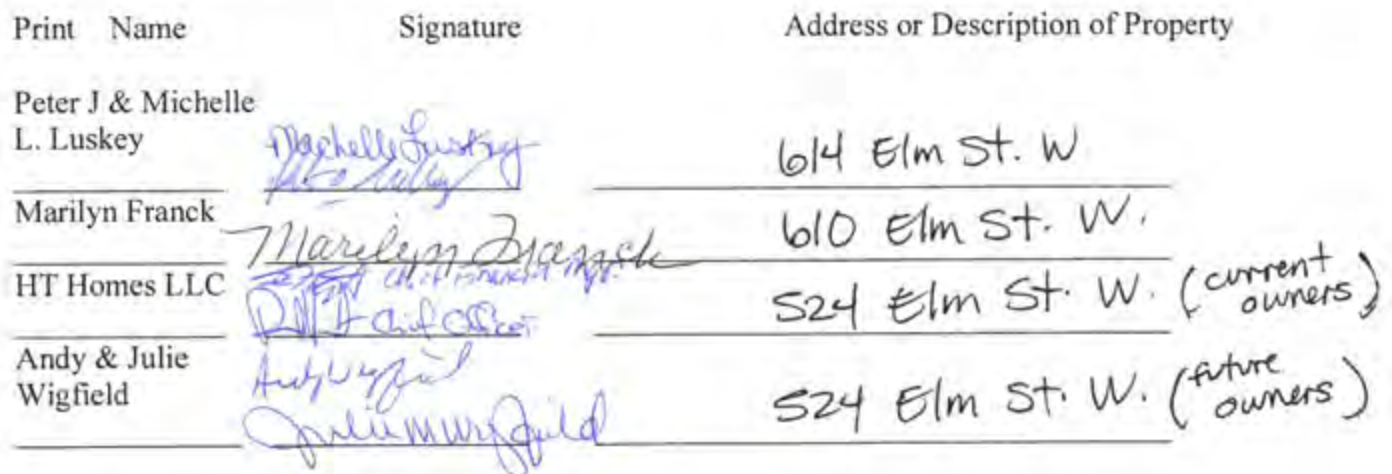 Print Name Signature Address or Description of Property
Peter J & Michelle
L. Luskey Michelle Luskey 614 Elm St. W
Marilyn Franck Marilyn Franck 610 Elm St. W.
HT Homes LLC Chief Officer 524 Elm St. W. (current owners)
Andy & Julie
Wigfield Andy Wigfield 524 Elm St. W. (future owners)
Julie M Wigfield